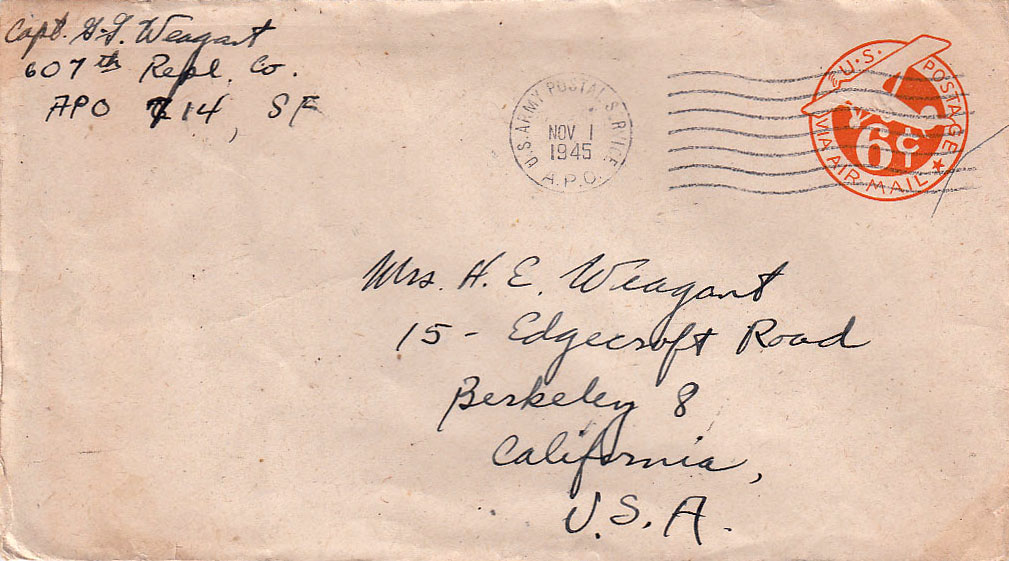 Capt. G. G. Weagant
607th Repl. Co.
APO 714, SF
U.S. ARMY POSTAL SERVICE
NOV 1
1945
A.P.O.
U.S. POSTAGE
6 CT
VIA AIR MAIL
Mrs. H. E. Weagant
15 - Edgecroft Road
Berkeley 8
California,
U.S.A.